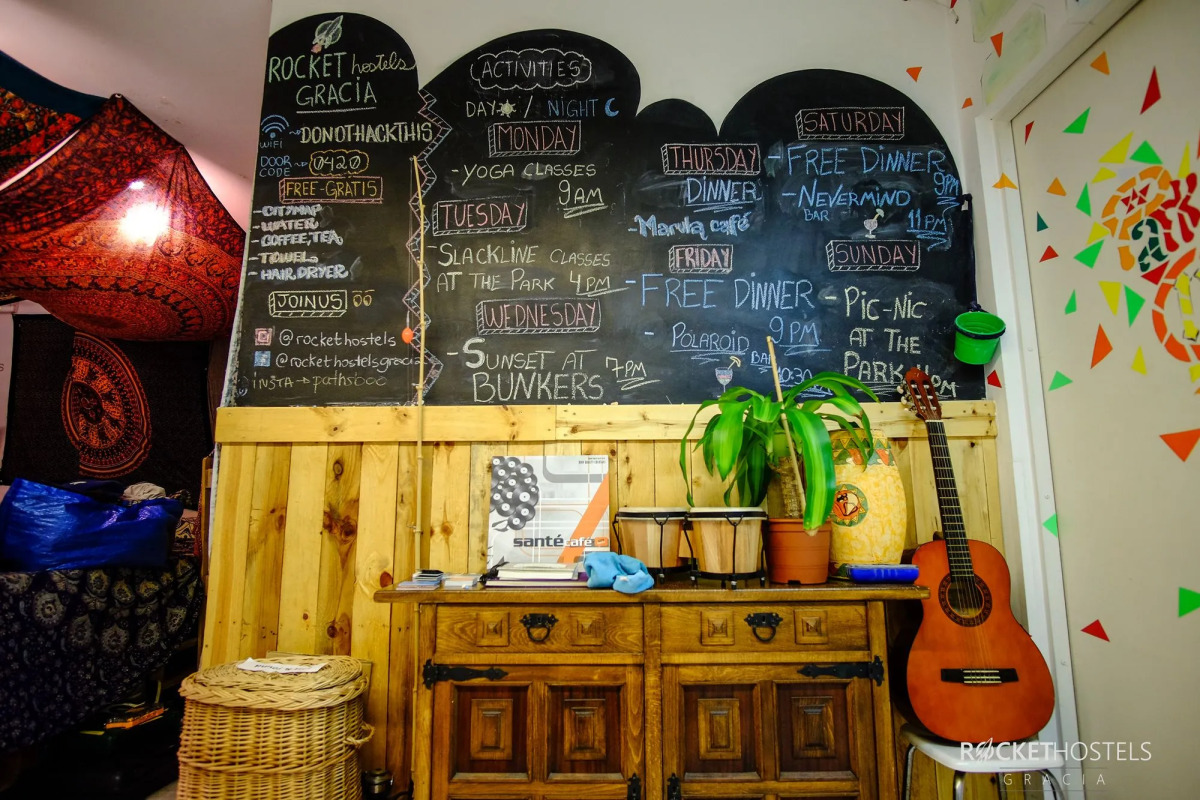 ROCKET hostels
GRACIA
WIFI DONOTHACKTHIS
DOOR CODE 0420
FREE-GRATIS
-CITYMAP
-WATER
-COFFEE, TEA
-TOWEL
-HAIR DRYER
JOIN US
@rockethostels
@rockethostelsgracia
INSTA → pathsboo
ACTIVITIES
DAY / NIGHT
MONDAY
-YOGA CLASSES
9AM
TUESDAY
-SLACKLINE CLASSES
AT THE PARK 4PM
WEDNESDAY
-SUNSET AT
BUNKERS 7PM
THURSDAY
DINNER
-Maruka café
FRIDAY
-FREE DINNER
9PM
-POLAROID
BAR 10:30
SATURDAY
-FREE DINNER
9PM
-NEVERMIND
BAR
11PM
SUNDAY
-PIC-NIC
AT THE
PARK PM
santé café
ROCKETHOSTELS
GRACIA